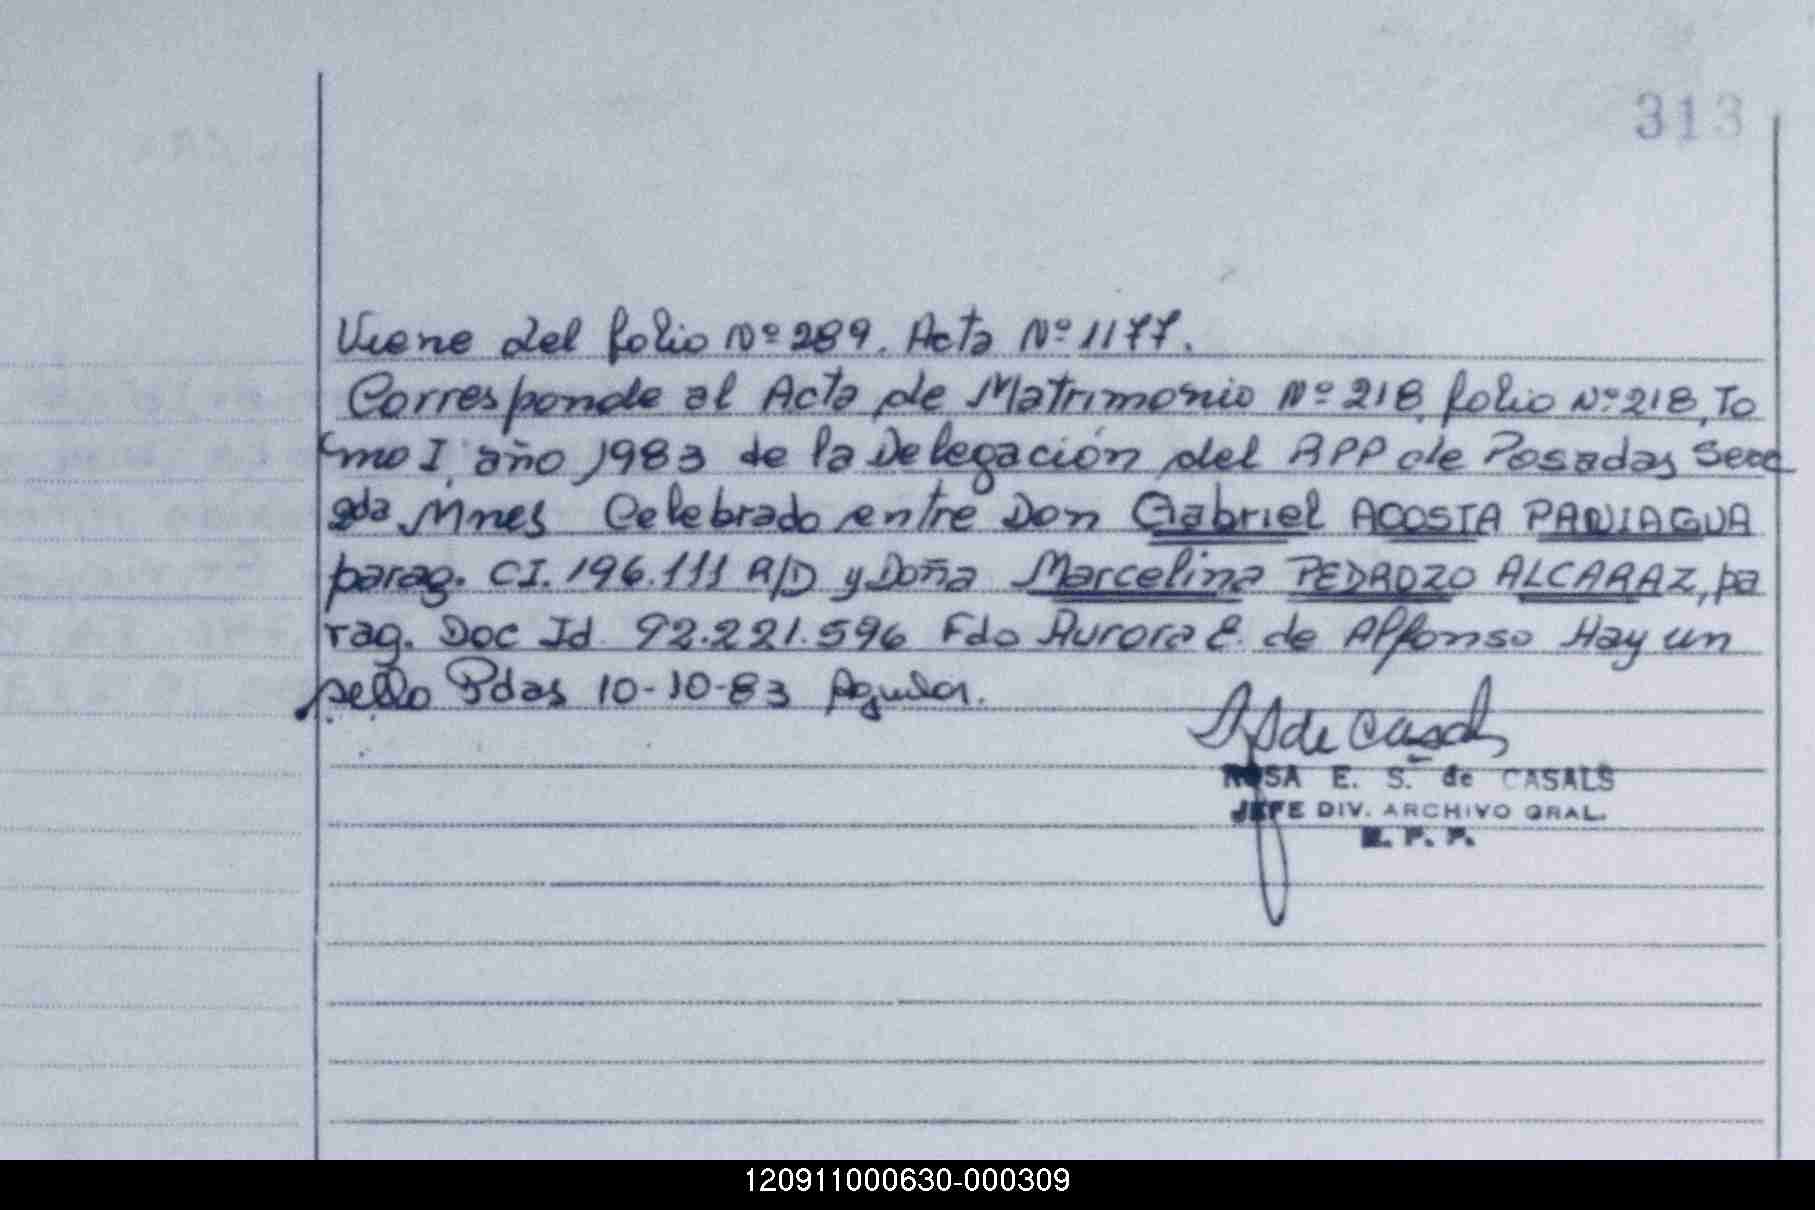 313
Viene del folio Nº 289. Acta Nº 1177.
Corresponde al Acta de Matrimonio Nº 218, folio Nº 218, To
mo I, año 1983 de la Delegación del RPP de Posadas Secc
2da Mnes Celebrado entre Don Gabriel ACOSTA PANIAGUA
parag. CI. 196.111 R/D y Doña Marcelina PEDROZO ALCARAZ, pa
rag. Doc Id 92.221.596 Fdo Aurora E. de Alfonso Hay un
sello Pdas 10-10-83 Aguilar.
ROSA E. S. de CASALS
JEFE DIV. ARCHIVO GRAL.
R. P. P.
120911000630-000309